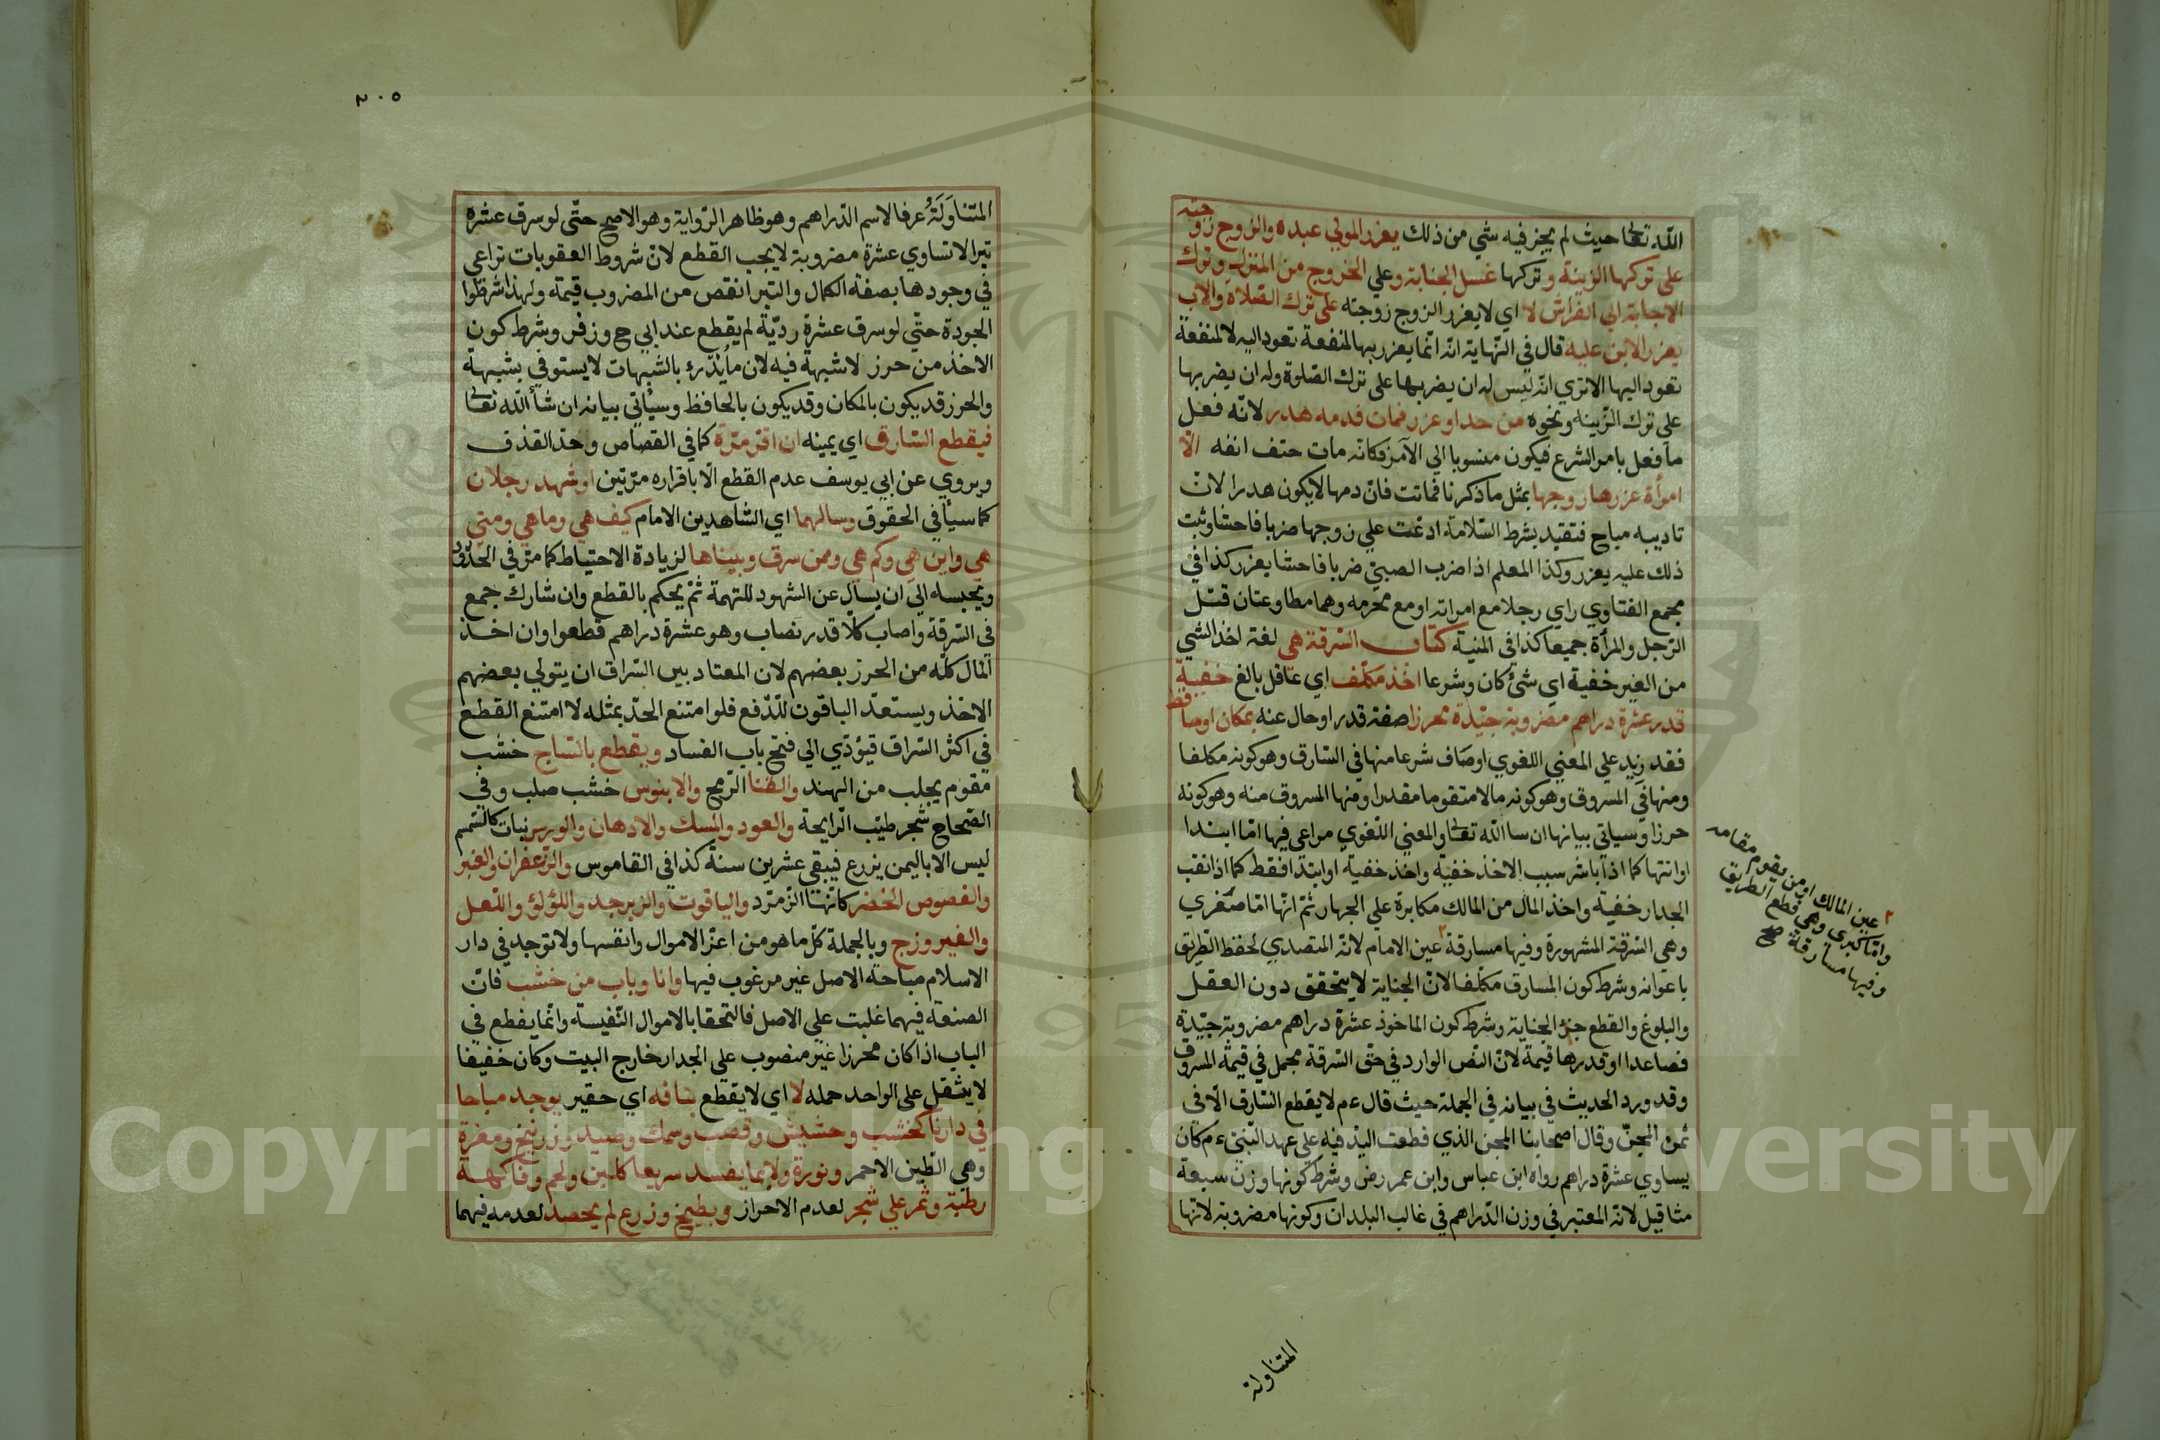 الله تعالى حيث لم يجز فيه شي من ذلك يعزر المولي عبده والزوج زوجته
على تركها الزينة وتركها غسل الجنابة وعلي الخروج من المنزل وترك
الاجابة الي الفراش لا اي لا يعزر الزوج زوجته على ترك الصلاة والاب
يعزر الابن عليه قال في النهاية انه انما يعزر بها لمنفعة تعود اليه لا لمنفعة
تعود اليها الا تري انه ليس له ان يضربها على ترك الصلوة وله ان يضربها
علي ترك الزينه ونحوه من حد او عزر فمات فدمه هدر لانه فعل
ما فعل بامر الشرع فيكون منسوبا الي الآمر فكانه مات حتف انفه الا
امرأة عزرها زوجها بمثل ما ذكرنا فماتت فان دمها لا يكون هدرا لان
تاديبه مباح فتقيد بشرط السلامة ادعت علي زوجها ضربا فاحشا وثبت
ذلك عليه يعزر وكذا المعلم اذا ضرب الصبي ضربا فاحشا يعزر كذا في
مجمع الفتاوي راي رجلا مع امراته او مع محرمه وهما مطاوعتان قتل
الرجل والمرأة جميعا كذا في المنية كتاب السرقة هي لغة اخذ الشي
من الغير خفية اي شئ كان وشرعا اخذ مكلف اي عاقل بالغ خفية
قدر عشرة دراهم مضروبة جيدة محرزا صفة قدر او حال عنه بمكان او حافظ
فقد زيد علي المعني اللغوي اوصاف شرعا منها في السارق وهو كونه مكلفا
ومنها في المسروق وهو كونه مالا متقوما مقدرا ومنها المسروق منه وهو كونه
حرزا وسياتي بيانها ان سا الله تعالى والمعني اللغوي مراعي فيها اما ابتدا
او انتها كما اذا باشر سبب الاخذ خفية واخذ خفية او ابتدا فقط كما اذا نقب
الجدار خفية واخذ المال من المالك مكابرة علي الجهار ثم انها اما صغري
وهي السرقة المشهورة وفيها مسارقة ٢ عين الامام لانه المتصدي لحفظ الطريق
باعوانه وشرط كون المسارق مكلفا لان الجناية لا يتحقق دون العقل
والبلوغ والقطع جزؤ الجناية وشرط كون الماخوذ عشرة دراهم مضروبة جيدة
فصاعدا او قدرها قيمة لان النص الوارد في حق السرقة مجمل في قيمة المسروق
وقد ورد الحديث في بيانه في الجملة حيث قال ءم لا يقطع السارق الا في
ثمن المجن وقال اصحابنا المجن الذي قطعت اليد فيه علي عهد النبي ءم كان
يساوي عشرة دراهم رواه ابن عباس وابن عمر رض وشرط كونها وزن سبعة
مثاقيل لانه المعتبر في وزن الدراهم في غالب البلدان وكونها مضروبة لانها
٢ عين المالك او من يقوم مقامه
واما كبري وهي قطع الطريق
وفيها مسارقة صح
المتناولة
٢٠٥
المتناولة عرفا لاسم الدراهم وهو ظاهر الرواية وهو الاصح حتى لو سرق عشرة
تبرا لا تساوي عشرة مضروبة لا يجب القطع لان شروط العقوبات تراعي
في وجودها بصفة الكمال والتبر انقص من المضروب قيمة ولهذا شرطوا
الجودة حتي لو سرق عشرة ردية لم يقطع عند ابي ح وزفر وشرط كون
الاخذ من حرز لا شبهة فيه لان ما يدرء بالشبهات لا يستوفي بشبهة
والحرز قد يكون بالمكان وقد يكون بالحافظ وسيأتي بيانه ان شأ الله تعالى
فيقطع السارق اي يمينه ان اقر مرة كما في القصاص وحد القذف
ويروي عن ابي يوسف عدم القطع الا باقراره مرتين او شهد رجلان
كما سيأ في الحقوق وسالهما اي الشاهدين الامام كيف هي وما هي ومتي
هي واين هي وكم هي وممن سرق وبيناها لزيادة الاحتياط كما مر في الحدود
ويحبسه الي ان يسال عن الشهود للتهمة ثم يحكم بالقطع وان شارك جمع
في السرقة واصاب كلا قدر نصاب وهو عشرة دراهم قطعوا وان اخذ
المال كله من الحرز بعضهم لان المعتاد بين السراق ان يتولي بعضهم
الاخذ ويستعد الباقون للدفع فلو امتنع الحد بمثله لا امتنع القطع
في اكثر السراق فيؤدي الي فتح باب الفساد ويقطع بالساج خشب
مقوم يجلب من الهند والقنا الرمح والابنوس خشب صلب وفي
الصحاح شجر طيب الرايحة والعود والمسك والادهان والورس نبات كالسمسم
ليس الا باليمن يزرع فيبقي عشرين سنة كذا في القاموس والزعفران والعنبر
والفصوص الخضر كانها الزمرد والياقوت والزبرجد واللؤلؤ واللعل
والفيروزج وبالجملة كل ما هو من اعز الاموال وانفسها ولا توجد في دار
الاسلام مباحة الاصل غير مرغوب فيها وانا وباب من خشب فان
الصنعة فيهما غلبت علي الاصل فالتحقا بالاموال النفيسة وانما يقطع في
الباب اذا كان محرزا غير منصوب علي الجدار خارج البيت وكان خفيفا
لا يثقل على الواحد حمله لا اي لا يقطع بتافه اي حقير يوجد مباحا
في دارنا كخشب وحشيش وقصب وسمك وصيد وزرنيخ ومغرة
وهي الطين الاحمر ونورة ولا بما يفسد سريعا كلبن ولحم وفاكهة
رطبة وثمر علي شجر لعدم الاحراز وبطيخ وزرع لم يحصد لعدمه فيهما
Copyright © King Saud University